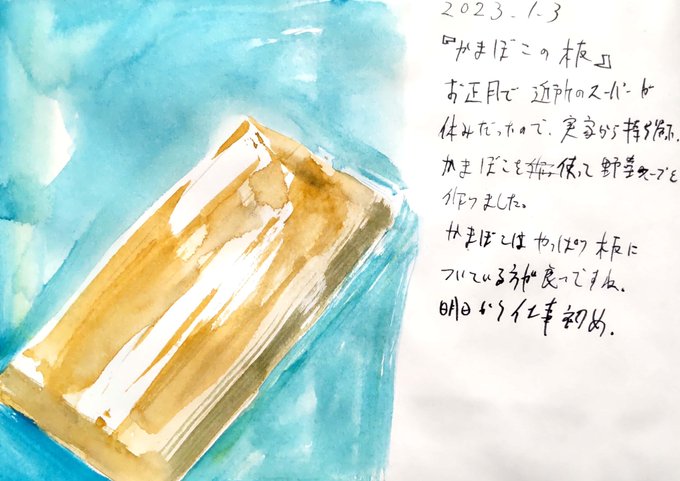 2023.1.3
『かまぼこの板』
お正月で 近所のスーパーが
休みだったので、実家から持ち帰った
かまぼこを 使って 野菜スープを
作りました。
かまぼこは やっぱり 板に
ついている方が良いですね。
明日から仕事初め。